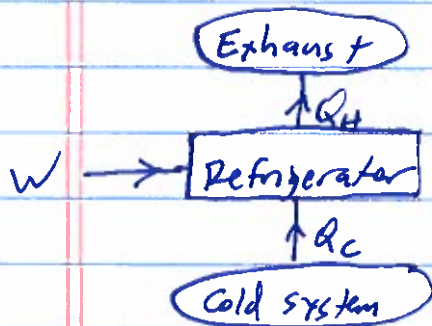 Exhaust
Q_H
W
Refrigerator
Q_C
Cold system